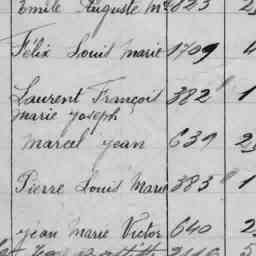 Emile Auguste Me 823 2
Félix Louis Marie 1709 4
Laurent François 382 1
Marie Joseph
Marcel Jean 639 2
Pierre Louis Marie 383 1
Jean Marie Victor 640 2